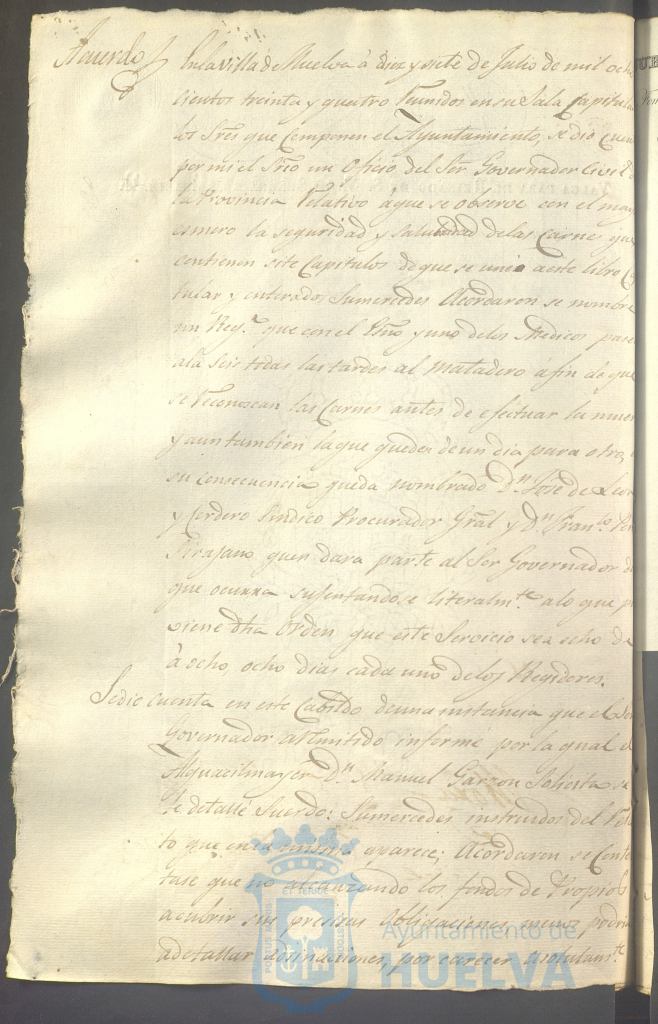 Acuerdo
En la villa de Huelva á diez y siete de Julio de mil ocho
cientos treinta y quatro Reunidos en su Sala Capitular
los Sres que Componen el Ayuntamiento, se dió cuen
por mi el Srio un Oficio del Sor Governador Civil de
la Provincia Relativo aque se observe con el may
esmero la seguridad y salubridad de las Carnes que
contienen siete Capitulos de que se une a este libro
tular y enterados Sumercedes Acordaron se nombre
un Regor que con el Srio y uno de los Medicos pase
alas seis todas las tardes al Matadero á fin de que
se Reconoscan las Carnes antes de efectuar la muer
y aun tambien la que queden de un dia para otro,
su consecuencia queda nombrado Dn Jose de Leon
y Cordero Sindico Procurador Gral y Dn Franco
quen dara parte al Sor Governador de
que ocurra sugentandose literalmte alo que
viene dha Orden que este Servicio sea echo de
á ocho, ocho dias cada uno de los Regidores.
Se dio cuenta en este Cabildo de una instancia que el Sor
Governador a Remitido informe por la qual el
Alguacil mayor Dn Manuel Garzon Solicita se
le detalle Sueldo: Sumercedes instruidos del
to que en la misma aparece; Acordaron se Conte
tase que no alcanzando los fondos de Propios
a cubrir sus presisas Obligaciones, menos podria
adetallar asinaciones, por carecer absolutamte
Ayuntamiento de
HUELVA